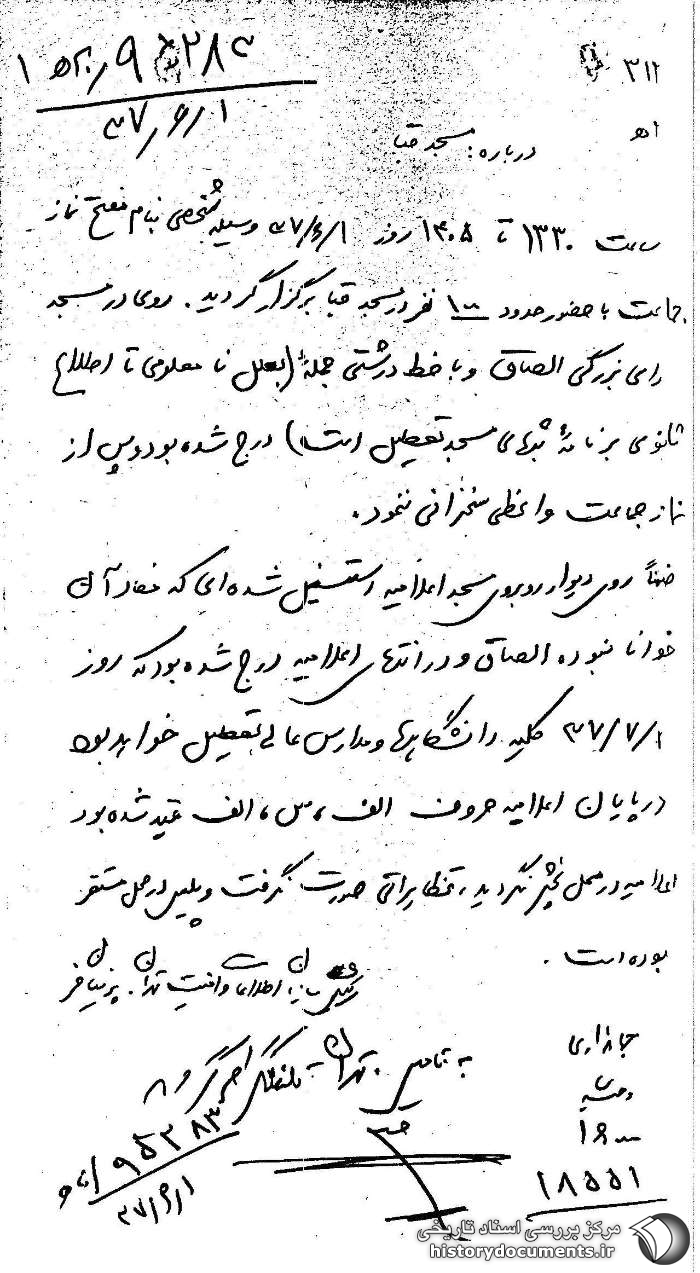 ۳۱۲
درباره: مسجد قبا
ساعت ۱۳۳۰ تا ۱۴۰۵ روز ۳۷/۶/۱ وسیله شخصی بنام مفتح نماز
جماعت با حضور حدود ۱۰۰ نفر در مسجد قبا برگزار گردید. روی در مسجد
بزرگی الصاق و با خط درشتی جمله (بعلل نا معلومی تا اطلاع
ثانوی برنامه شبهای مسجد تعطیل است) درج شده بود و پس از
نماز جماعت واعظی سخنرانی ننمود.
ضمناً روی دیوار روبروی مسجد اعلامیه استنسیل شده ای که مفاد آن
خوانا نبوده الصاق و در انتهای اعلامیه درج شده بود که روز
۳۷/۷/۱ کلیه دانشگاهها و مدارس عالی تعطیل خواهد بود
در پایان اعلامیه حروف الف، س، الف قید شده بود
اعلامیه در محل پخش نگردید، تظاهراتی صورت نگرفت و پلیس در محل مستقر
بوده است.
اطلاعات و امنیت تهران.
به تامین. تهران
۱۸۵۵۱
مرکز بررسی اسناد تاریخی
historydocuments.ir